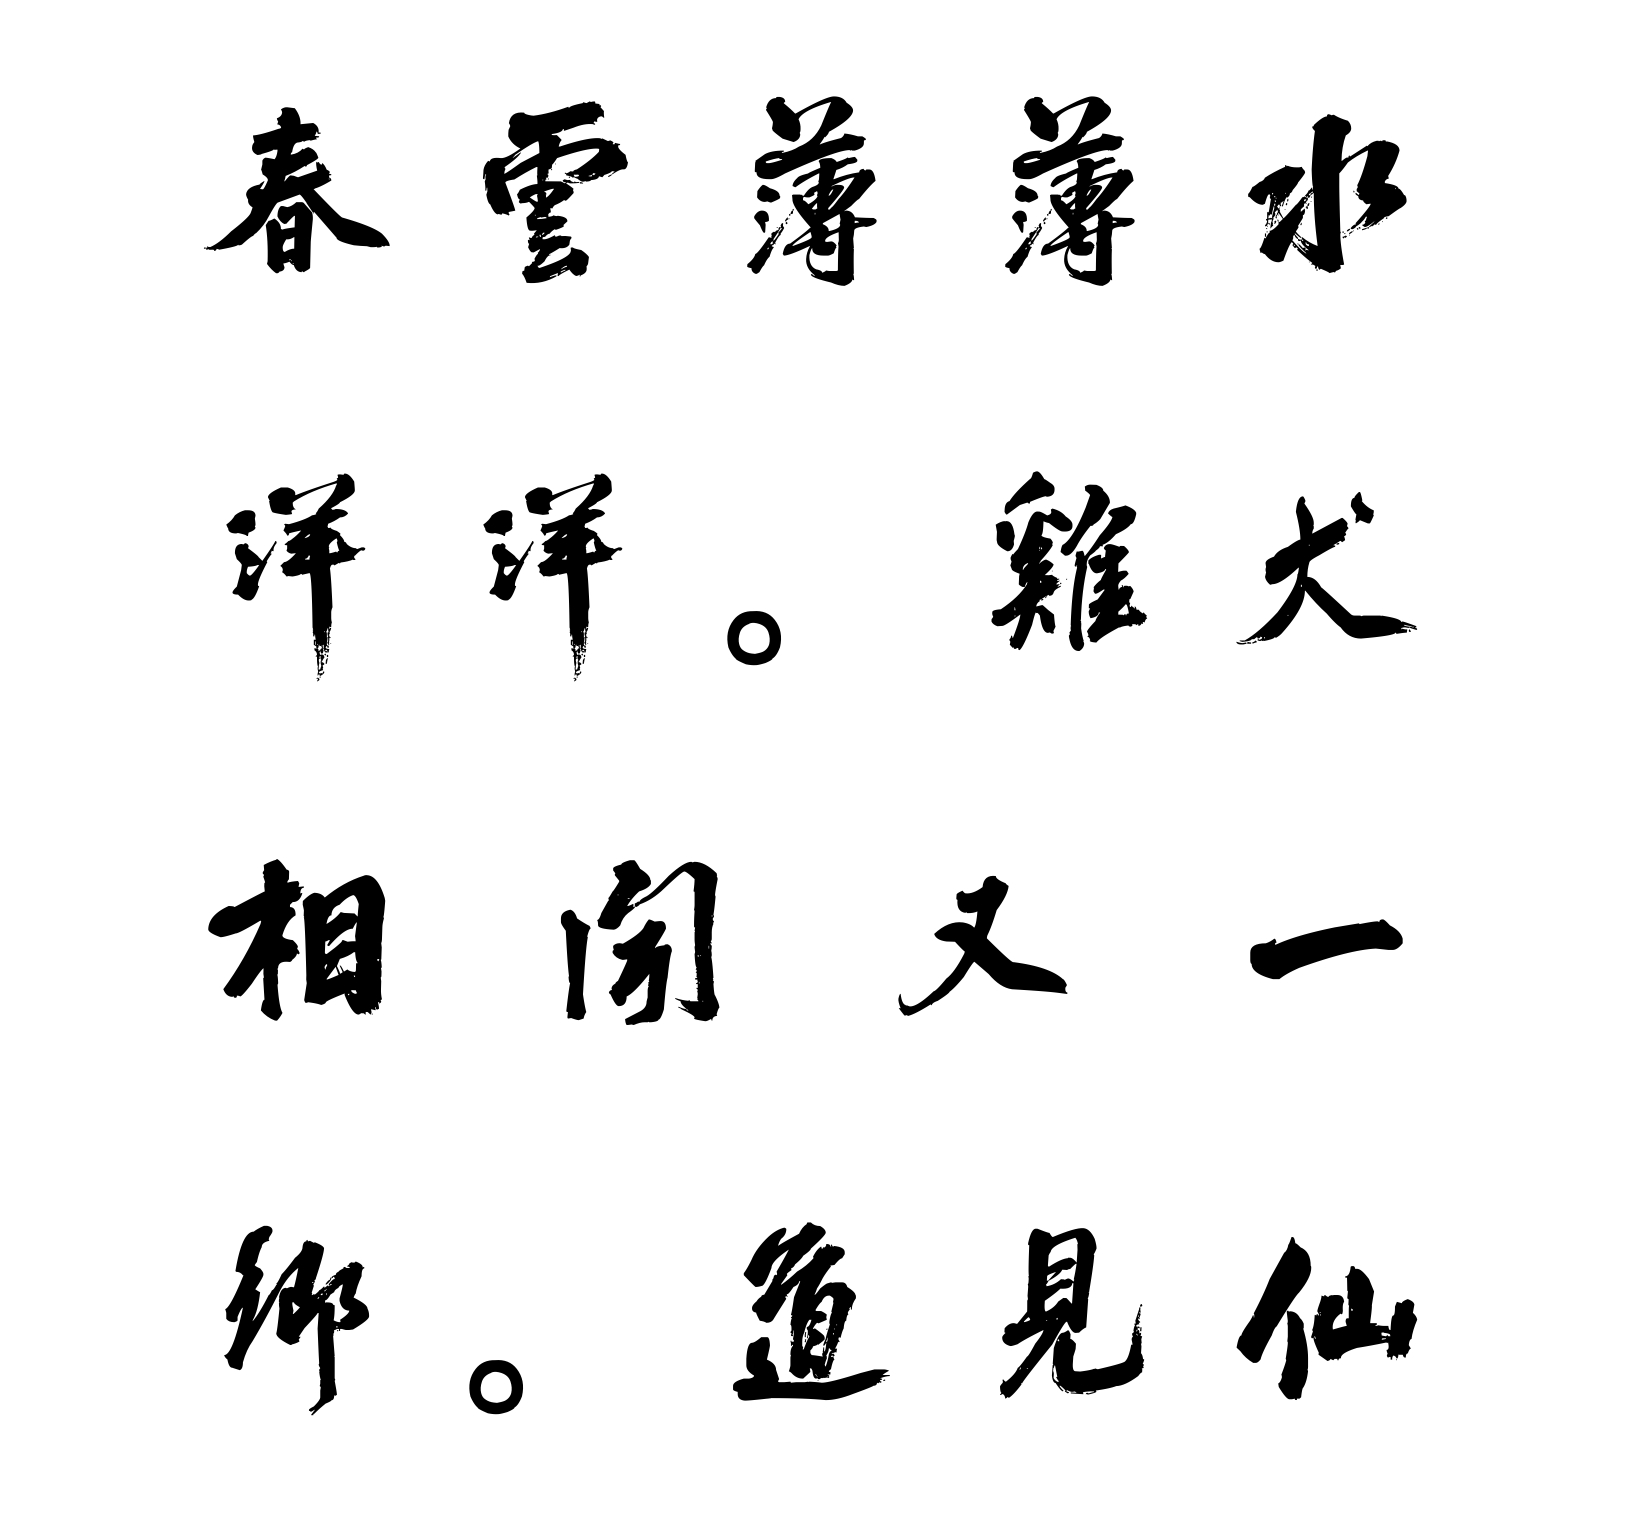 春雲薄薄水
洋洋。雞犬
相聞又一
鄉。道見仙